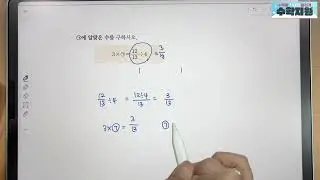 수학지원
㉠에 알맞은 수를 구하시오.
3×㉠=12/13÷4 =3/13
12/13÷4 = 12÷4/13 = 3/13
3×㉠=3/13 ㉠